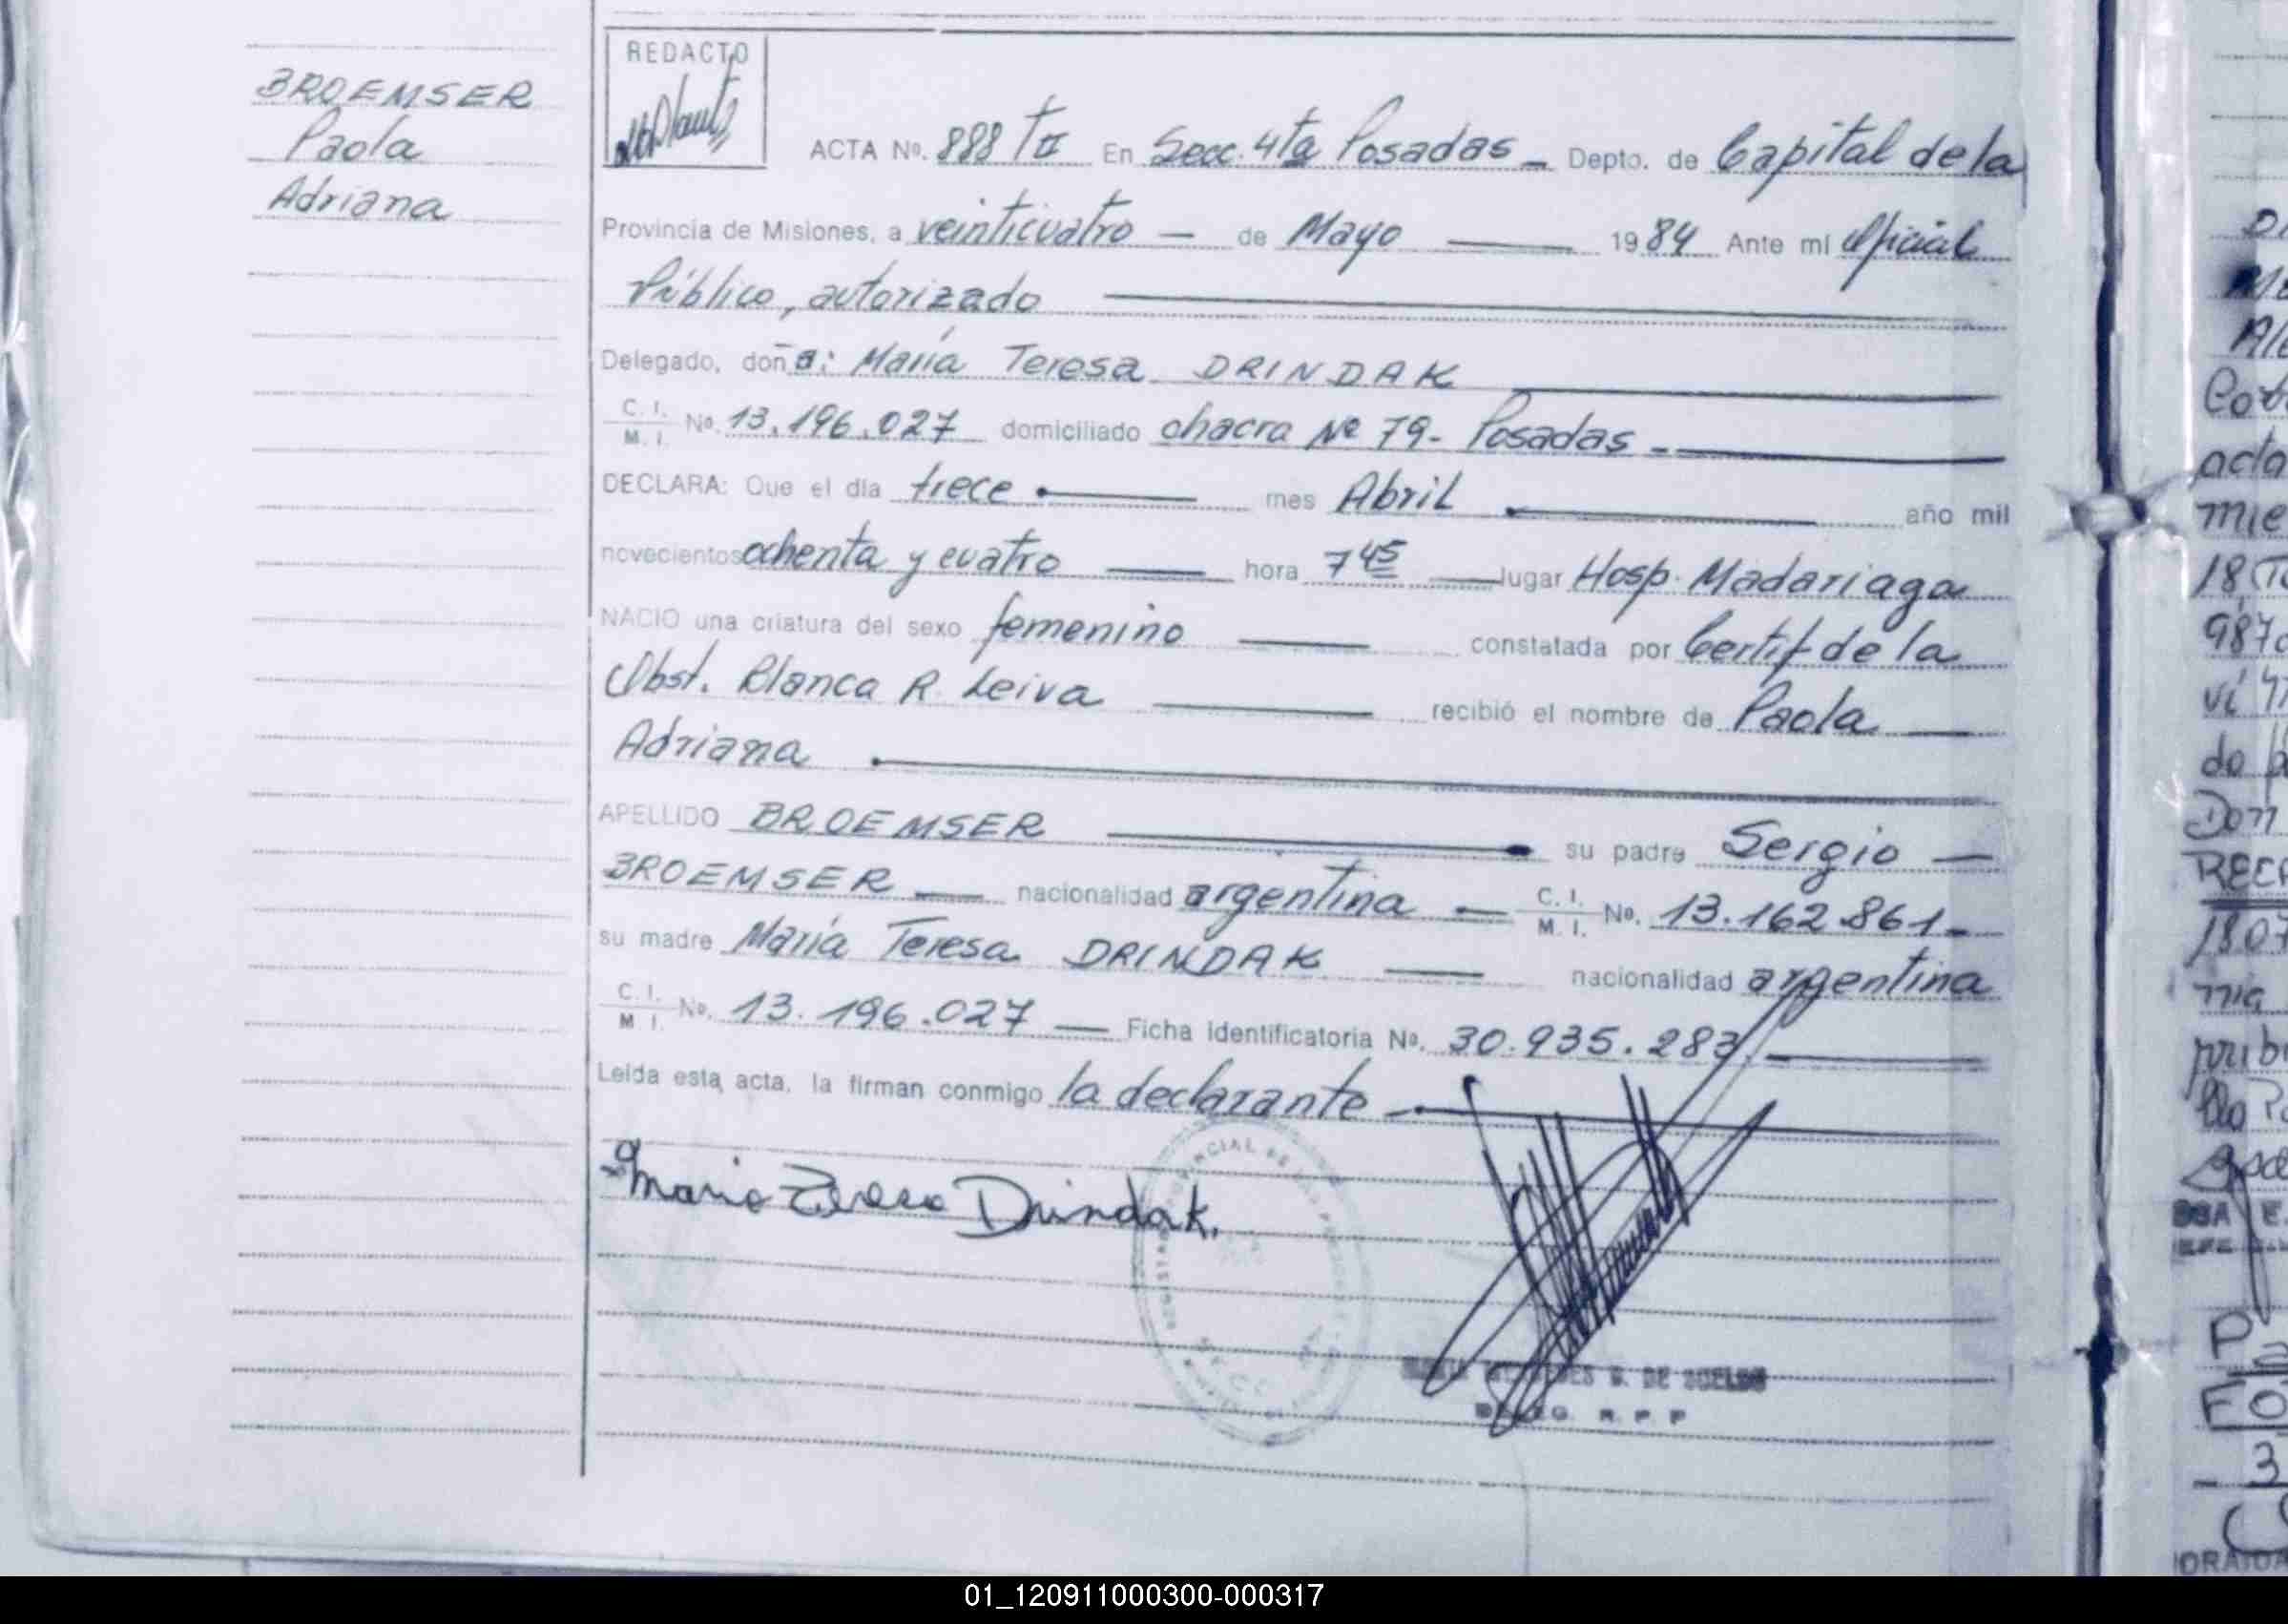 BROEMSER
Paola
Adriana
REDACTO
ACTA Nº. 888 TII En Secc. 4ta Posadas - Depto. de Capital de la
Provincia de Misiones, a veinticuatro — de Mayo — 1984 Ante mi Oficial
Público, autorizado
Delegado, doña: María Teresa DRINDAK
C. I.
M. I. Nº. 13.196.027 domiciliado chacra Nº 79- Posadas -
DECLARA: Que el día trece mes Abril año mil
novecientos ochenta y cuatro — hora 7 45 — lugar Hosp. Madariaga
NACIO una criatura del sexo femenino — constatada por Certif de la
Obst. Blanca R. Leiva — recibió el nombre de Paola —
Adriana
APELLIDO BROEMSER — su padre Sergio —
BROEMSER — nacionalidad argentina — C. I. M. I. Nº. 13.162.861-
su madre María Teresa DRINDAK — nacionalidad argentina
C. I.
M. I. Nº. 13.196.027 — Ficha Identificatoria Nº. 30.935.283. —
Leída esta acta, la firman conmigo la declarante -
Maria Teresa Drindak.
DE SUELDO
DELEG. R. P. P
01_120911000300-000317